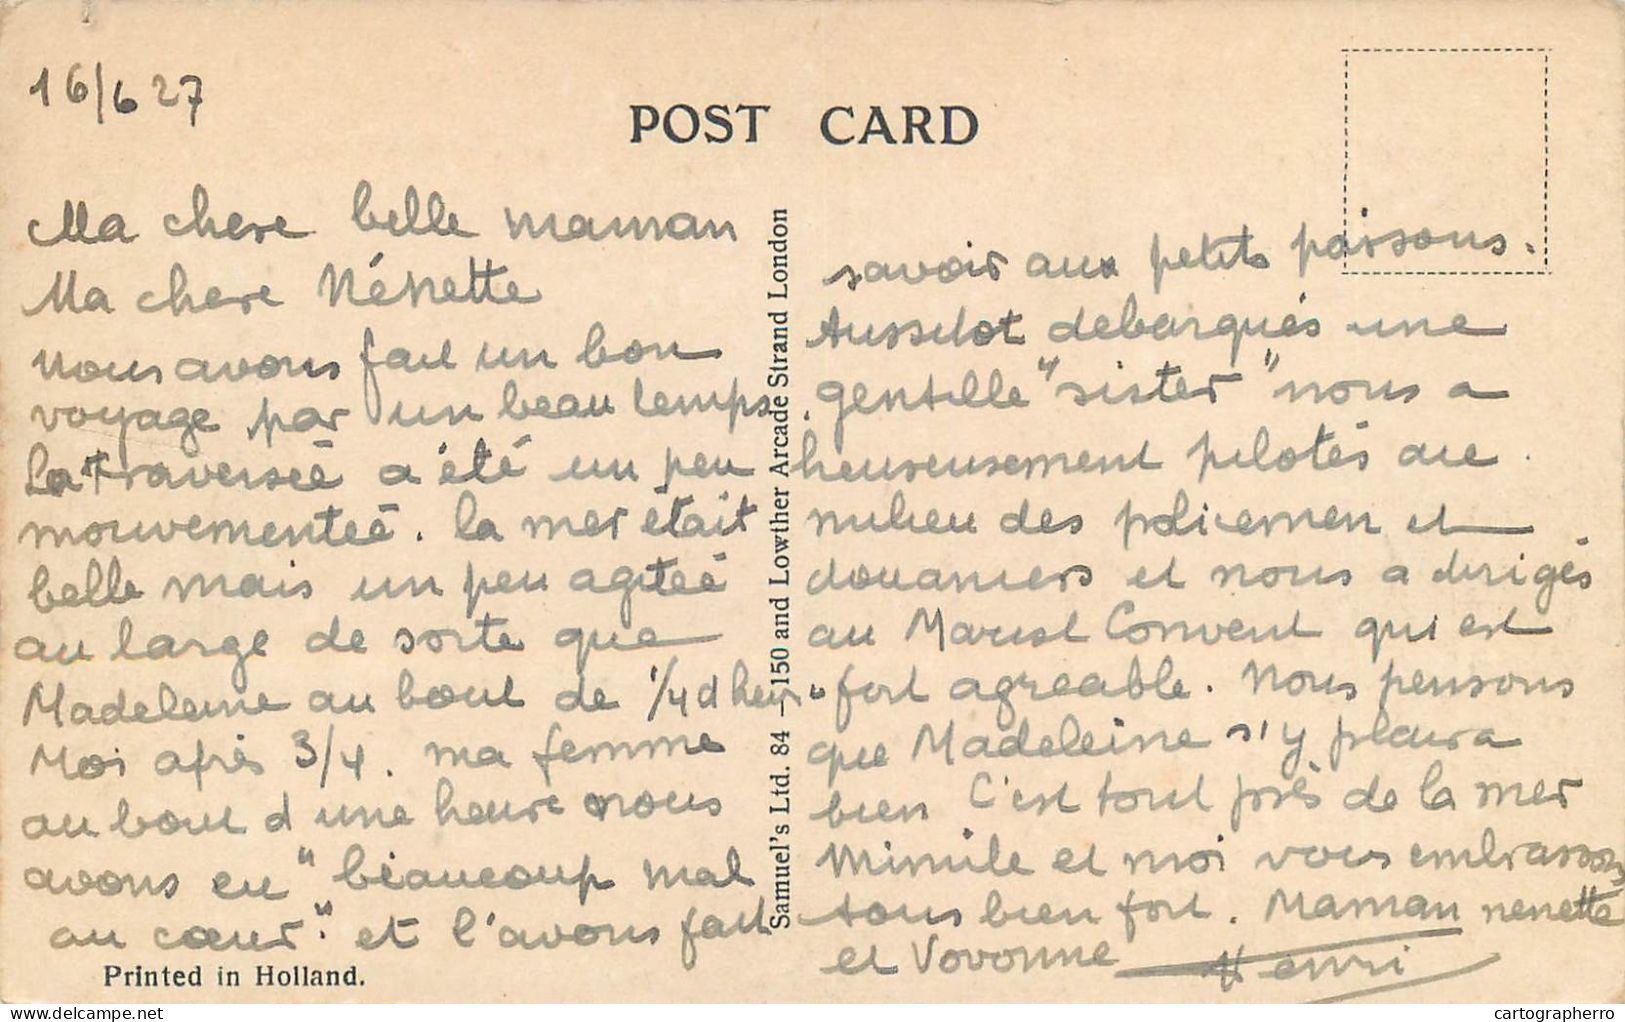 16/6 27
POST CARD
Ma chere belle maman
Ma chere Nénette
Nous avons fait un bon
voyage par un beau temps.
La traverseé a été un peu
mouvementeé. la mer était
belle mais un peu agiteé
au large de sorte que
Madeleine au bout de 1/4 d heure
Moi après 3/4. ma femme
au bout d une heure nous
avons eu "beaucoup mal
au cœur." et l'avons fait
Printed in Holland.
Samuel's Ltd. 84 — 150 and Lowther Arcade Strand London
savoir aux petits poissons.
Aussitot debarqués une
gentille "sister" nous a
heureusement pilotés au
milieu des policemen et
douaniers et nous a dirigés
au Marist Convent qui est
fort agreable. Nous pensons
que Madeleine s'y plaira
bien C'est tout près de la mer
Mimile et moi vous embrassons
tous bien fort. Maman nenette
et Vovonne Henri
cartographerro